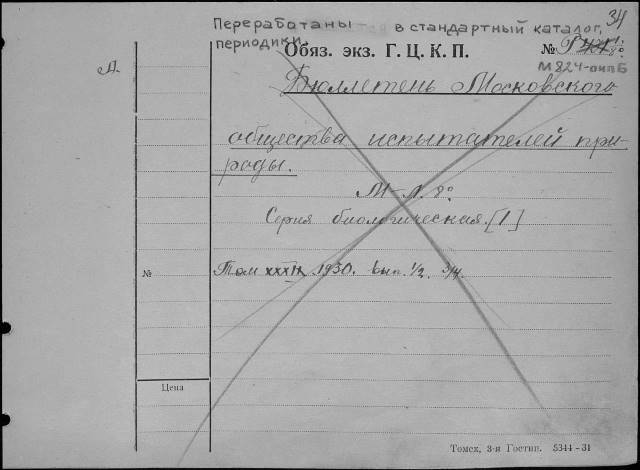 34
Переработаны в стандартный каталог,
периодики.
Обяз. экз. Г. Ц. К. П. №
М 824-опиБ
А.
Бюллетень Московского
общества испытателей при-
роды.
М-Л. 8º
Серия биологическая. [1]
№ Том 1930. вып. 1/2. 3/4.
Цена
Томск, 3-я Гостип. 5344-31